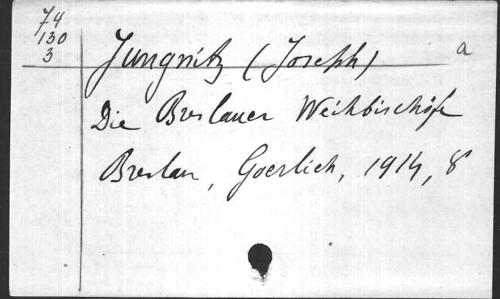 74
130
3
Jungnitz (Joseph) a
Die Breslauer Weihbischöfe
Breslau, Goerlich, 1914, 8